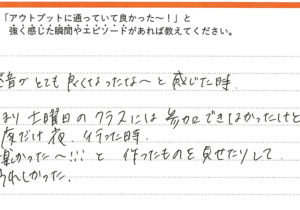 「アウトプットに通っていて良かった〜！」と
強く感じた瞬間やエピソードがあれば教えてください。
発音がとても良くなったな〜と感じた時
まり土曜日のクラスには参加できなかったけど
度だけ夜、行った時、
楽しかった〜!!! と 作ったものを見せたりして
うれしかった。